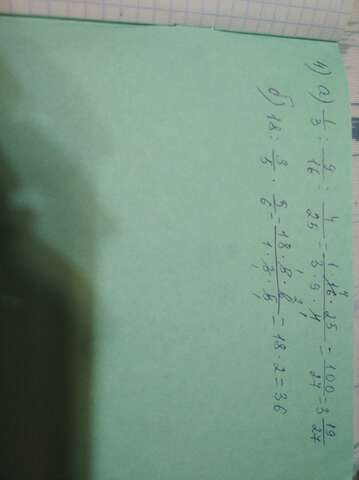 1) а) 1/3 : 9/16 : 4/25 = 1·16·25/3·9·4 = 100/27 = 3 19/27
б) 18 : 3/5 · 6/5 = 18·5·6/1·3·5 = 18·2=36